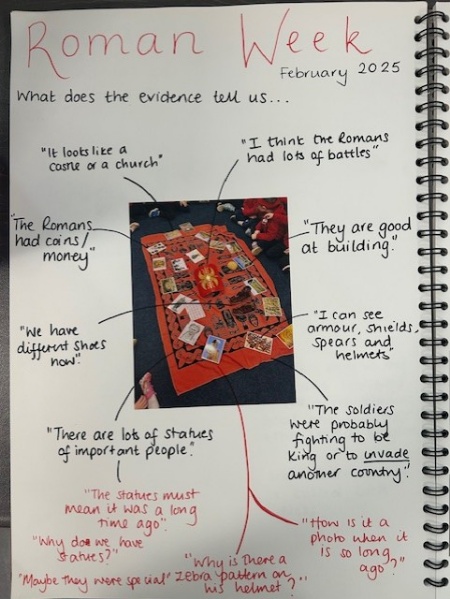 Roman Week
February 2025
What does the evidence tell us...
"It looks like a
castle or a church"
"I think the Romans
had lots of battles"
"The Romans
had coins/
money"
"They are good
at building."
"We have
different shoes
now."
"I can see
armour, shields,
spears and
helmets"
"There are lots of statues
of important people."
"The soldiers
were probably
fighting to be
king or to invade
another country."
"The statues must
mean it was a long
time ago"
"Why do we have
statues?"
"Maybe they were special"
"Why is there a
zebra pattern on
his helmet?"
"How is it a
photo when it
is so long
ago?"